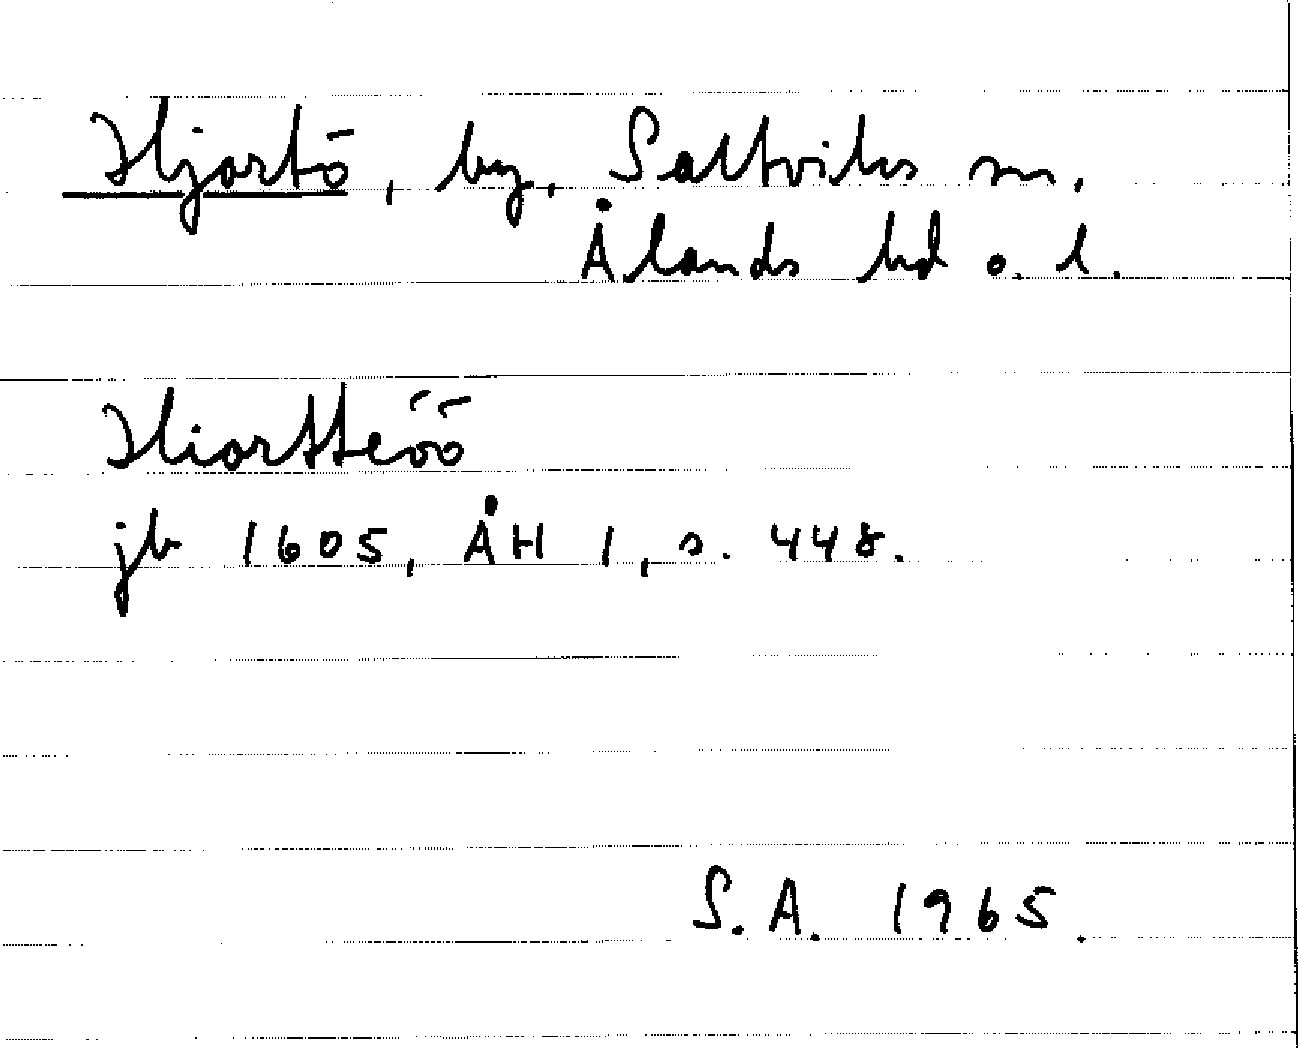 Hjortö, by, Saltviks sn,
Ålands hd o. l.
Hiortteöö
jb 1605, ÅH 1, s. 448.
S.A. 1965.